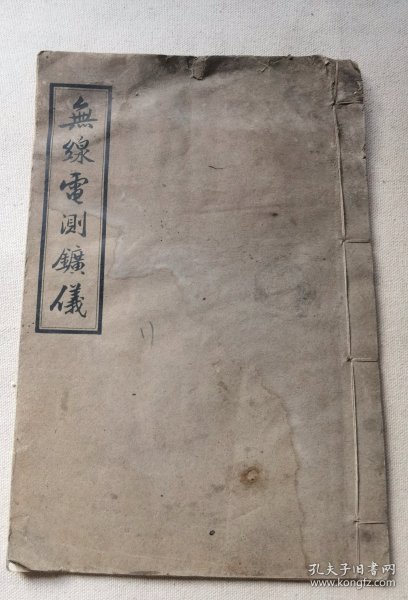 無線電測鑛儀
孔夫子旧书网
www.kongfz.com